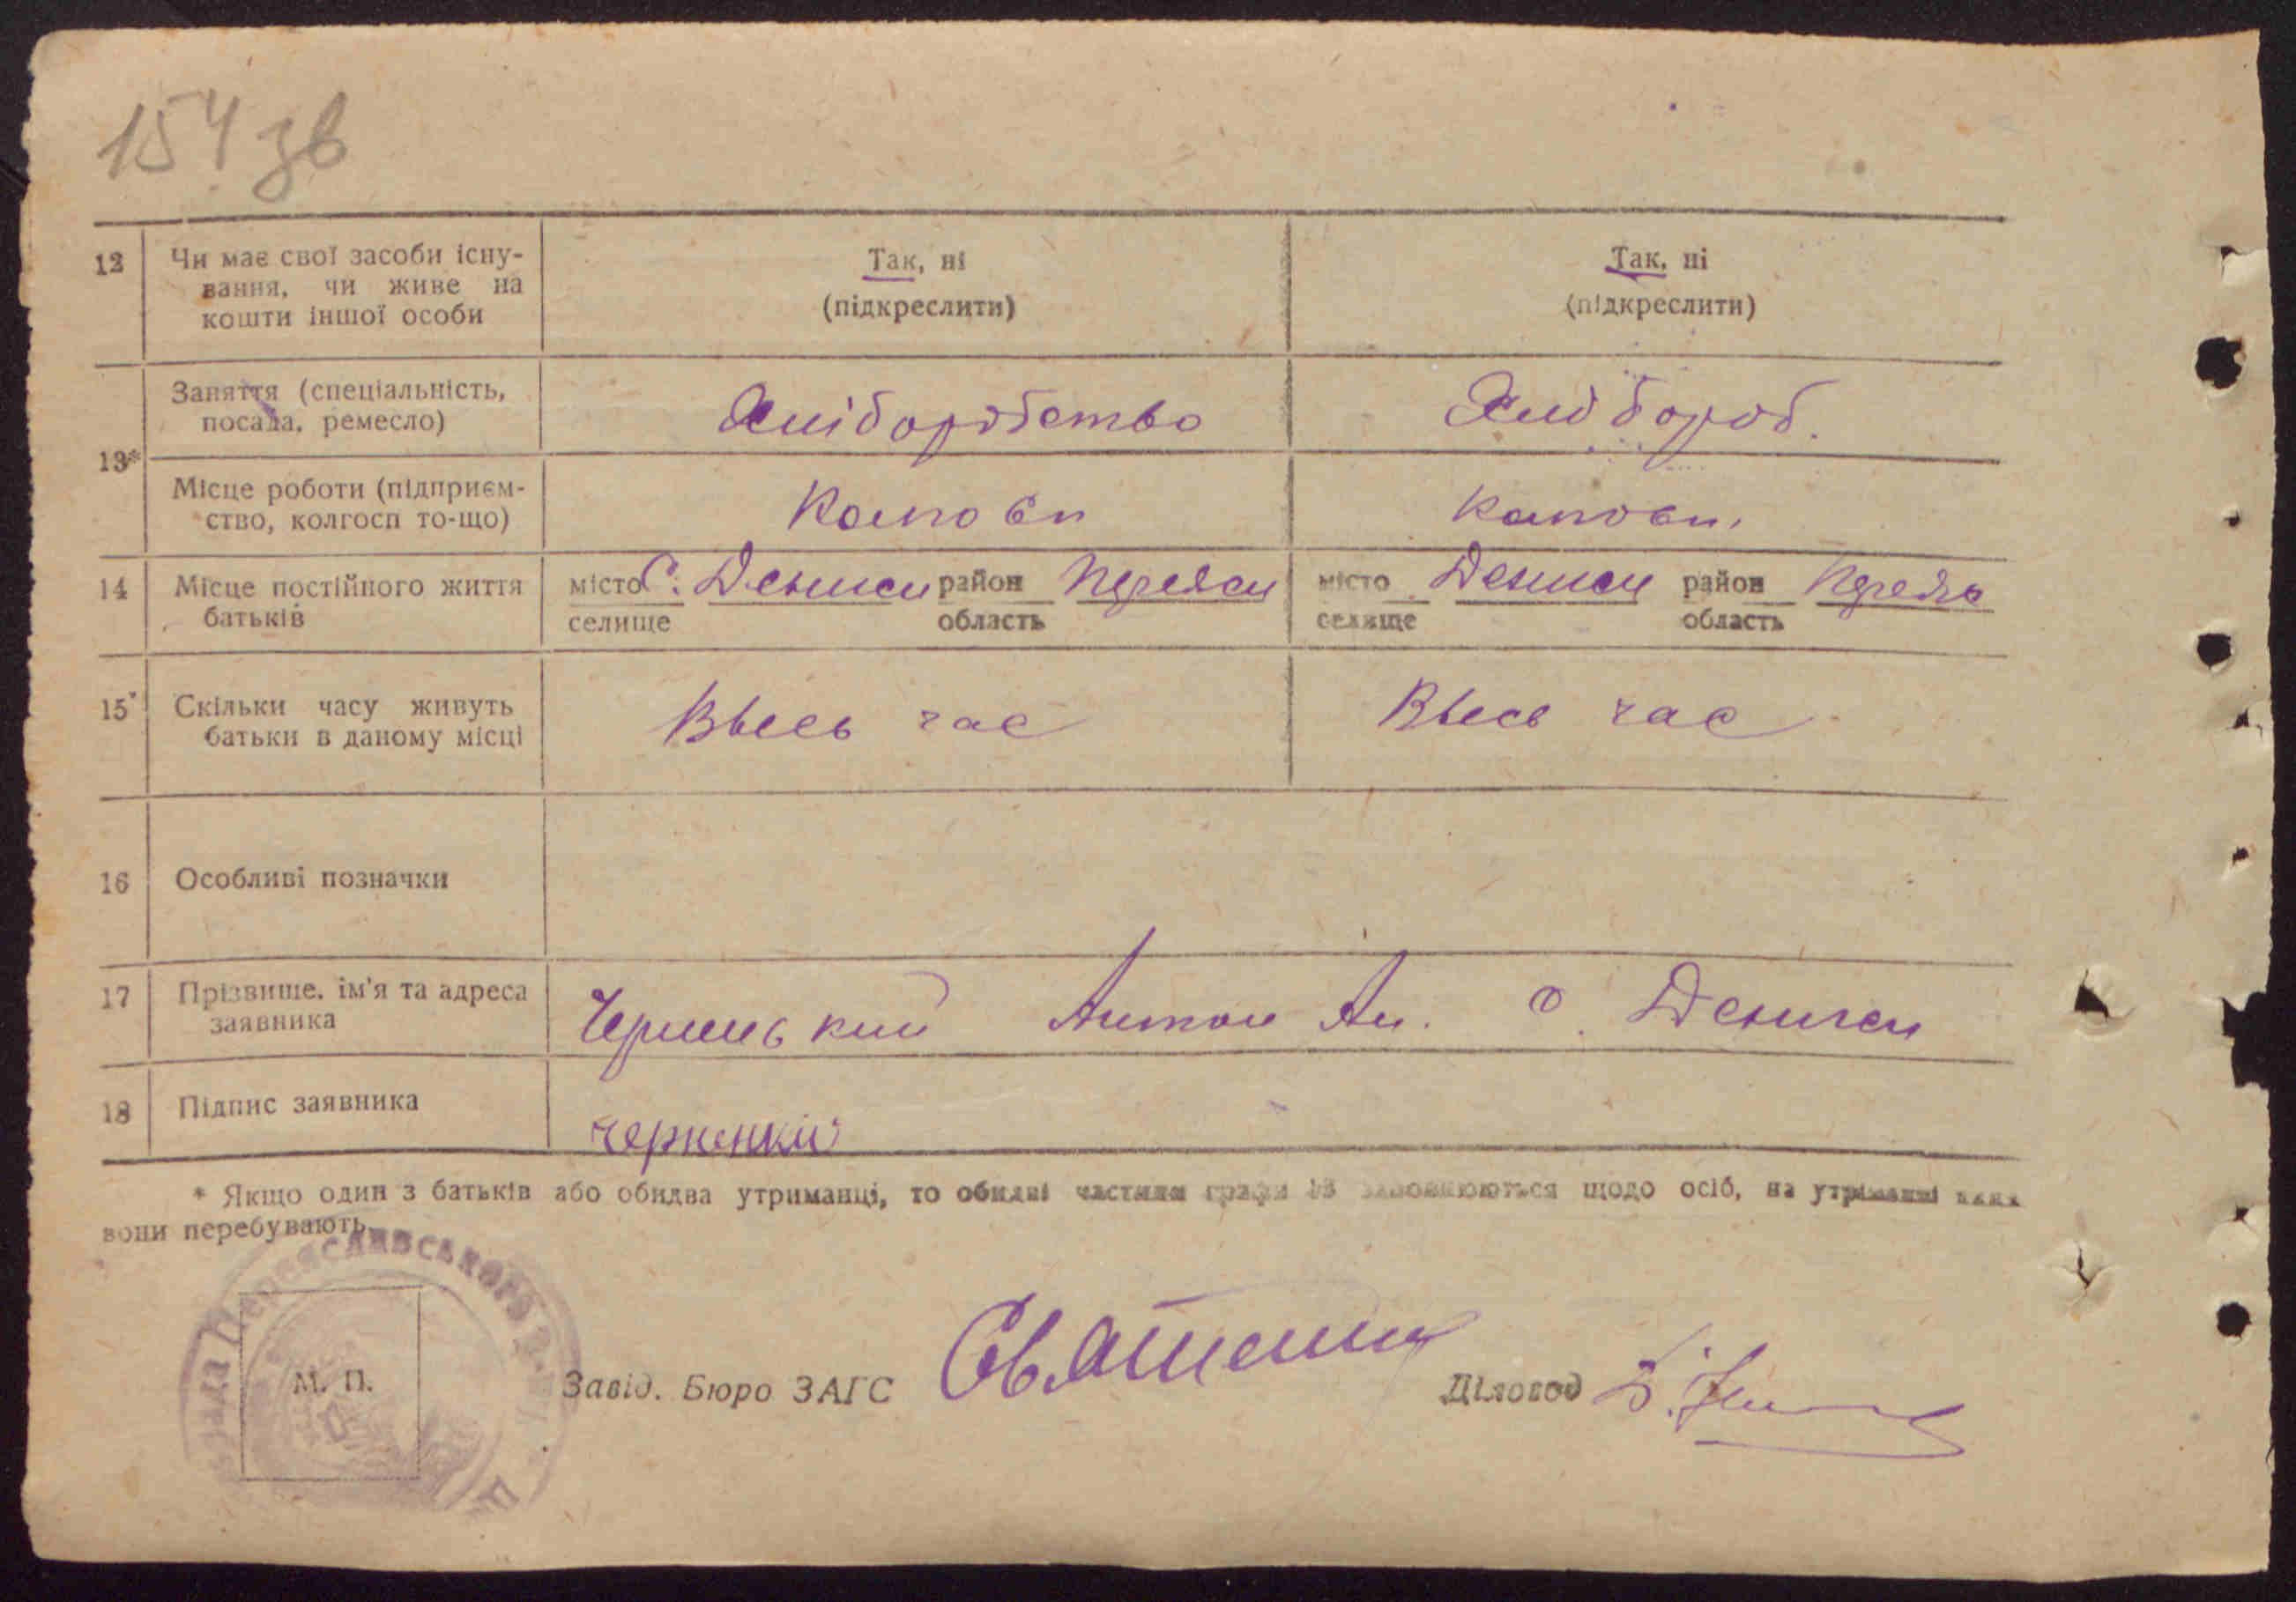 154 зв
12 Чи має свої засоби існу- Так, ні Так, ні
вання, чи живе на (підкреслити) (підкреслити)
кошти іншої особи
13* Заняття (спеціальність, Хліборобство Хлібороб.
посада, ремесло)
Місце роботи (підприєм-
ство, колгосп то-що)
14 Місце постійного життя місто С. Дениси район Переясл місто Дениси район Переяс
батьків селище область селище область
15* Скільки часу живуть Ввесь час Ввесь час
батьки в даному місці
16 Особливі позначки
17 Прізвище, ім'я та адреса Антон Ан. с. Дениси
заявника
18 Підпис заявника
* Якщо один з батьків або обидва утриманці, то обидві частини графи 13 заповнюються щодо осіб, на утриманні яких
вони перебувають.
М. П.
Завід. Бюро ЗАГС Діловод